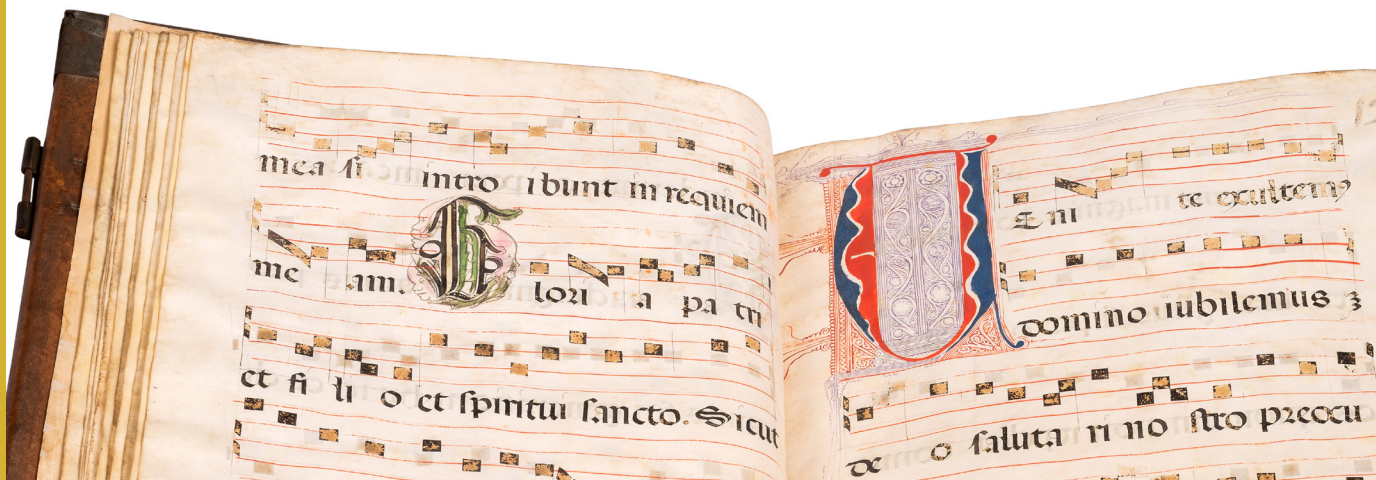 mea si intro ibunt in requiem
me am. Glori a pa tri
et fi li o et spiritui sancto. Sicut
U Eni te exultemus
domino iubilemus
de o saluta ri no stro preocu